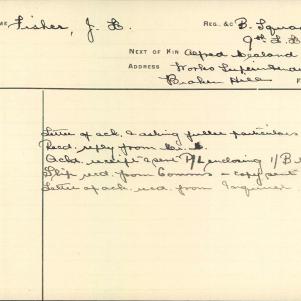 AME Fisher, J. L. REG. &C B. Squa
9th L.
NEXT OF KIN Alfred
ADDRESS Works Superintende
Broken Hill F
Letter of ack. & asking fuller particulars
Recd. reply from
Ackd. receipt & sent P/L enclosing 1/B
Slip recd. from Comms & copy sent
Letter of ack. recd. from Inquirer